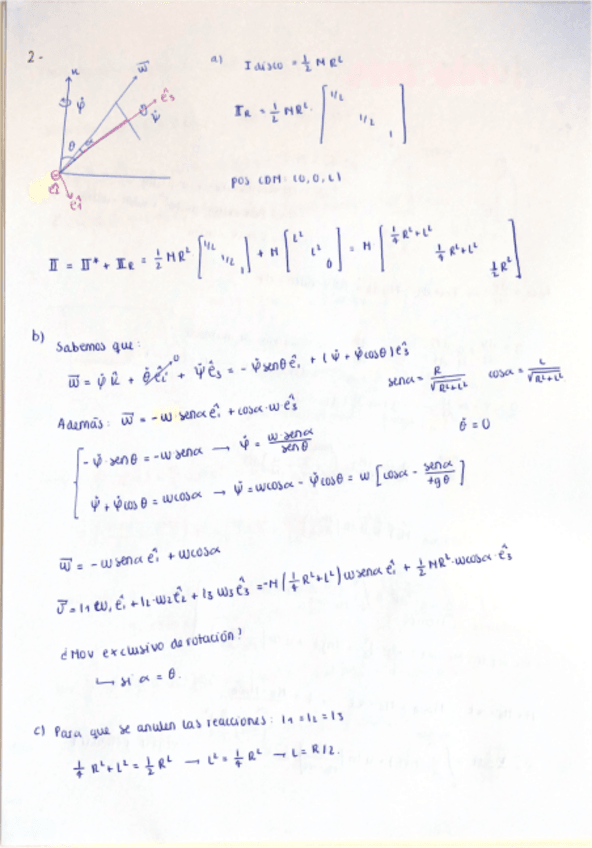 2-
κ
ω̄
φ̇
ê₃
ψ̇
θ
α
ê₂
ê₁
a) I disco = ½ MR²
𝕀R = ½ MR² [1/2 1/2 1]
pos CDM: (0,0,L)
𝕀 = 𝕀* + 𝕀R = ½ MR² [1/2 1/2 1] + M [L² L² 0] = M [¼R²+L² ¼R²+L² ½R²]
b) Sabemos que:
ω̄ = φ̇ k̂ + θ̇ ê₂ ⁰ + ψ̇ ê₃ = - φ̇ senθ ê₁ + (ψ̇ + φ̇cosθ) ê₃
senα = R/√(R²+L²) cosα = L/√(R²+L²)
Además: ω̄ = -ω senα ê₁ + cosα·ω ê₃
θ̇ = 0
- φ̇·senθ = -ω senα → φ̇ = ω·senα/senθ
ψ̇ + φ̇cosθ = ωcosα → ψ̇ = ωcosα - φ̇cosθ = ω [cosα - senα/tgθ]
ω̄ = - ω senα ê₁ + ωcosα
J̄ = I₁ω₁ê₁ + I₂·ω₂ê₂ + I₃ω₃ê₃ = -M(¼R²+L²)ω senα ê₁ + ½ MR²·ωcosα·ê₃
¿Mov exclusivo de rotación?
↳ si α = θ.
c) Para que se anulen las reacciones: I₁ = I₂ = I₃
¼R²+L² = ½R² → L² = ¼R² → L = R/2.